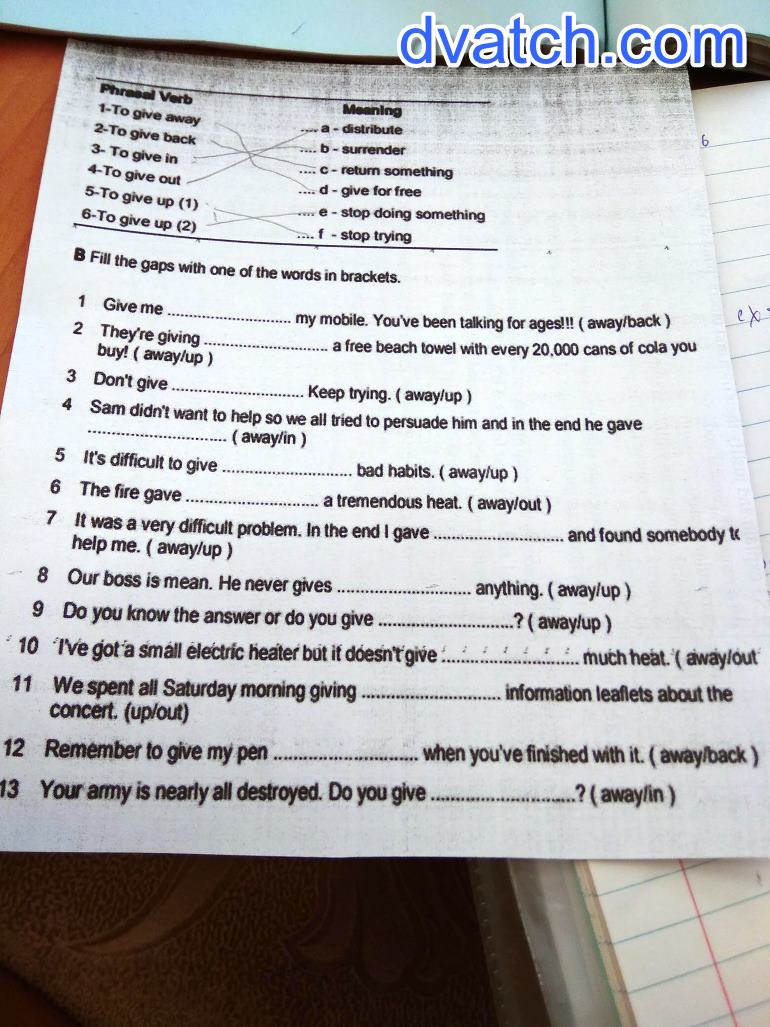 dvatch.com
Phrasal Verb Meaning
1-To give away .... a - distribute
2-To give back .... b - surrender
3- To give in .... c - return something
4-To give out .... d - give for free
5-To give up (1) .... e - stop doing something
6-To give up (2) .... f - stop trying
B Fill the gaps with one of the words in brackets.
1 Give me .............................. my mobile. You've been talking for ages!!! ( away/back )
2 They're giving .............................. a free beach towel with every 20,000 cans of cola you
buy! ( away/up )
3 Don't give .............................. Keep trying. ( away/up )
4 Sam didn't want to help so we all tried to persuade him and in the end he gave
.............................. ( away/in )
5 It's difficult to give .............................. bad habits. ( away/up )
6 The fire gave .............................. a tremendous heat. ( away/out )
7 It was a very difficult problem. In the end I gave .............................. and found somebody to
help me. ( away/up )
8 Our boss is mean. He never gives .............................. anything. ( away/up )
9 Do you know the answer or do you give ..............................? ( away/up )
10 I've got a small electric heater but it doesn't give .............................. much heat. ( away/out
11 We spent all Saturday morning giving .............................. information leaflets about the
concert. (up/out)
12 Remember to give my pen .............................. when you've finished with it. ( away/back )
13 Your army is nearly all destroyed. Do you give ..............................? ( away/in )
6